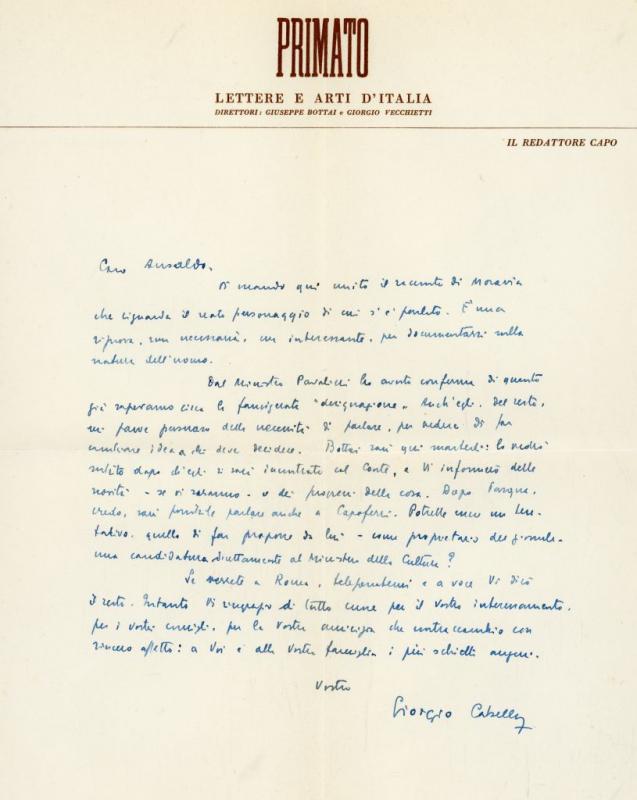 PRIMATO
LETTERE E ARTI D'ITALIA
DIRETTORI: GIUSEPPE BOTTAI e GIORGIO VECCHIETTI
IL REDATTORE CAPO
Caro Ansaldo,
Vi mando qui unito il recente di Moravia
che riguarda il reale personaggio di cui s'è parlato. È una
riprova, non necessaria, ma interessante, per documentarsi sulla
natura dell'uomo.
Dal Ministro Pavolini ho avuto conferma di quanto
già sapevamo circa la famigerata "designazione". Anch'egli, del resto,
mi parve persuaso della necessità di parlare, per vedere di far
cambiare idea a chi deve decidere. Bottai sarà qui martedì: lo vedrò
subito dopo ch'egli si sarà incontrato col Conte, e Vi informerò delle
novità - se vi saranno - o dei progressi della cosa. Dopo Pasqua,
credo, sarà possibile parlare anche a Capoferri. Potrebbe essere un ten-
tativo, quello di far proporre da lui - come proprietario del giornale -
una candidatura direttamente al Ministero della Cultura?
Se verrete a Roma, telefonatemi e a voce Vi dirò
il resto. Intanto Vi ringrazio di tutto cuore per il vostro interessamento,
per i vostri consigli, per la vostra amicizia che contraccambio con
sincero affetto: a Voi e alla vostra famiglia i più schietti auguri.
Vostro
Giorgio Cabella